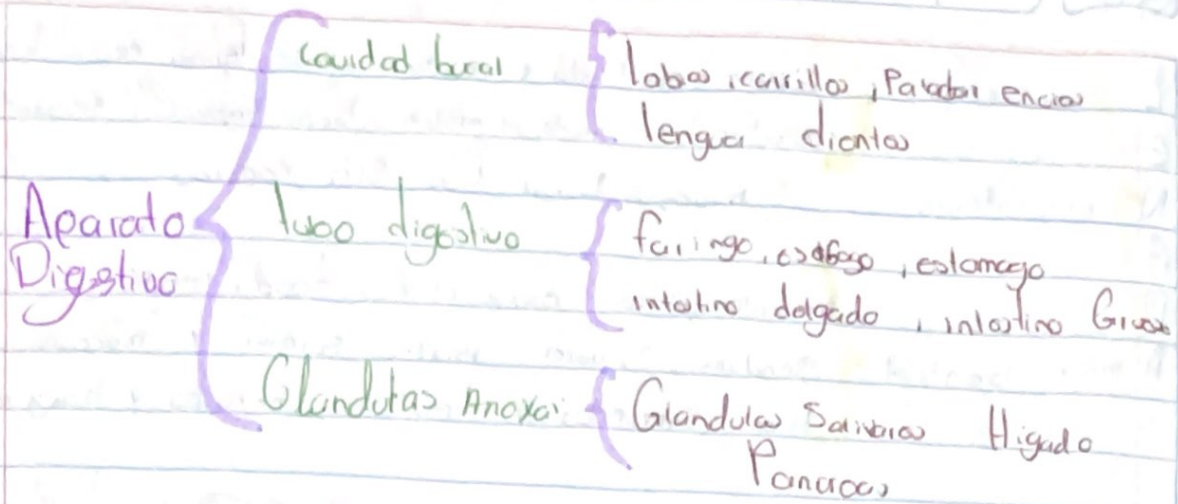 Aparato
Digestivo
cavidad bucal
labios, carrillos, Paladar encias
lengua dientes
tubo digestivo
faringe, esófago, estomago
intestino delgado, intestino Grueso
Glandulas Anexas
Glandulas Salivales Higado
Pancreas